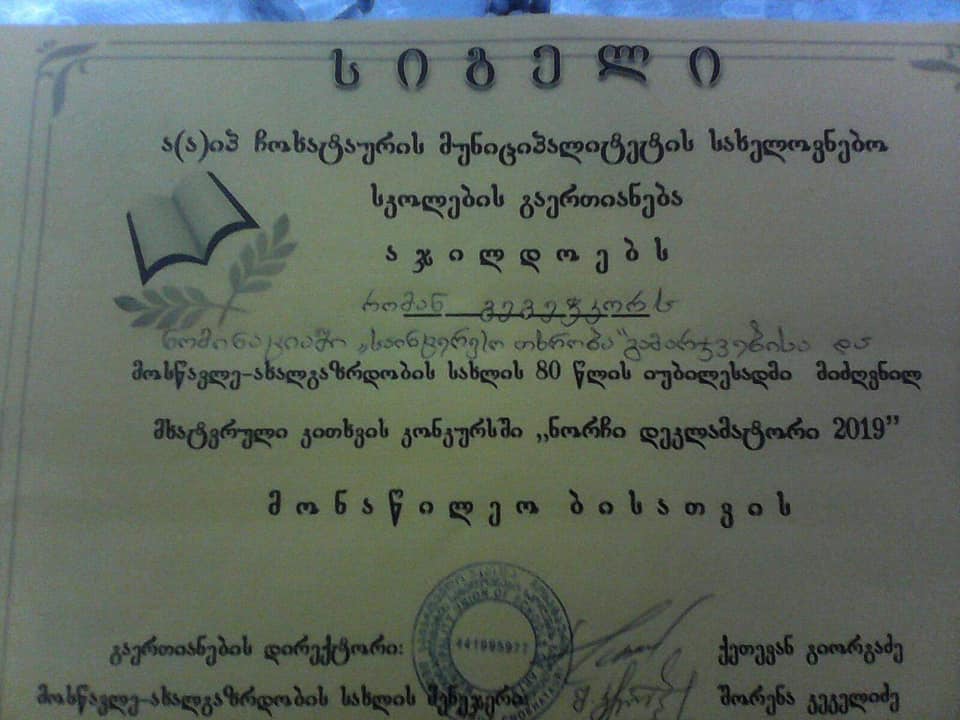 სიგელი
ა(ა)იპ ჩოხატაურის მუნიციპალიტეტის სახელოვნებო
სკოლების გაერთიანება
აჯილდოებს
რომან გეგეჭკორს
ნომინაციაში „საინტერესო თხრობა" გამარჯვებისა და
მოსწავლე-ახალგაზრდობის სახლის 80 წლის იუბილესადმი მიძღვნილ
მხატვრული კითხვის კონკურსში ,,ნორჩი დეკლამატორი 2019”
მონაწილეობისათვის
441995977
გაერთიანების დირექტორი: ქეთევან გიორგაძე
მოსწავლე-ახალგაზრდობის სახლის მენეჯერი: შორენა კეკელიძე